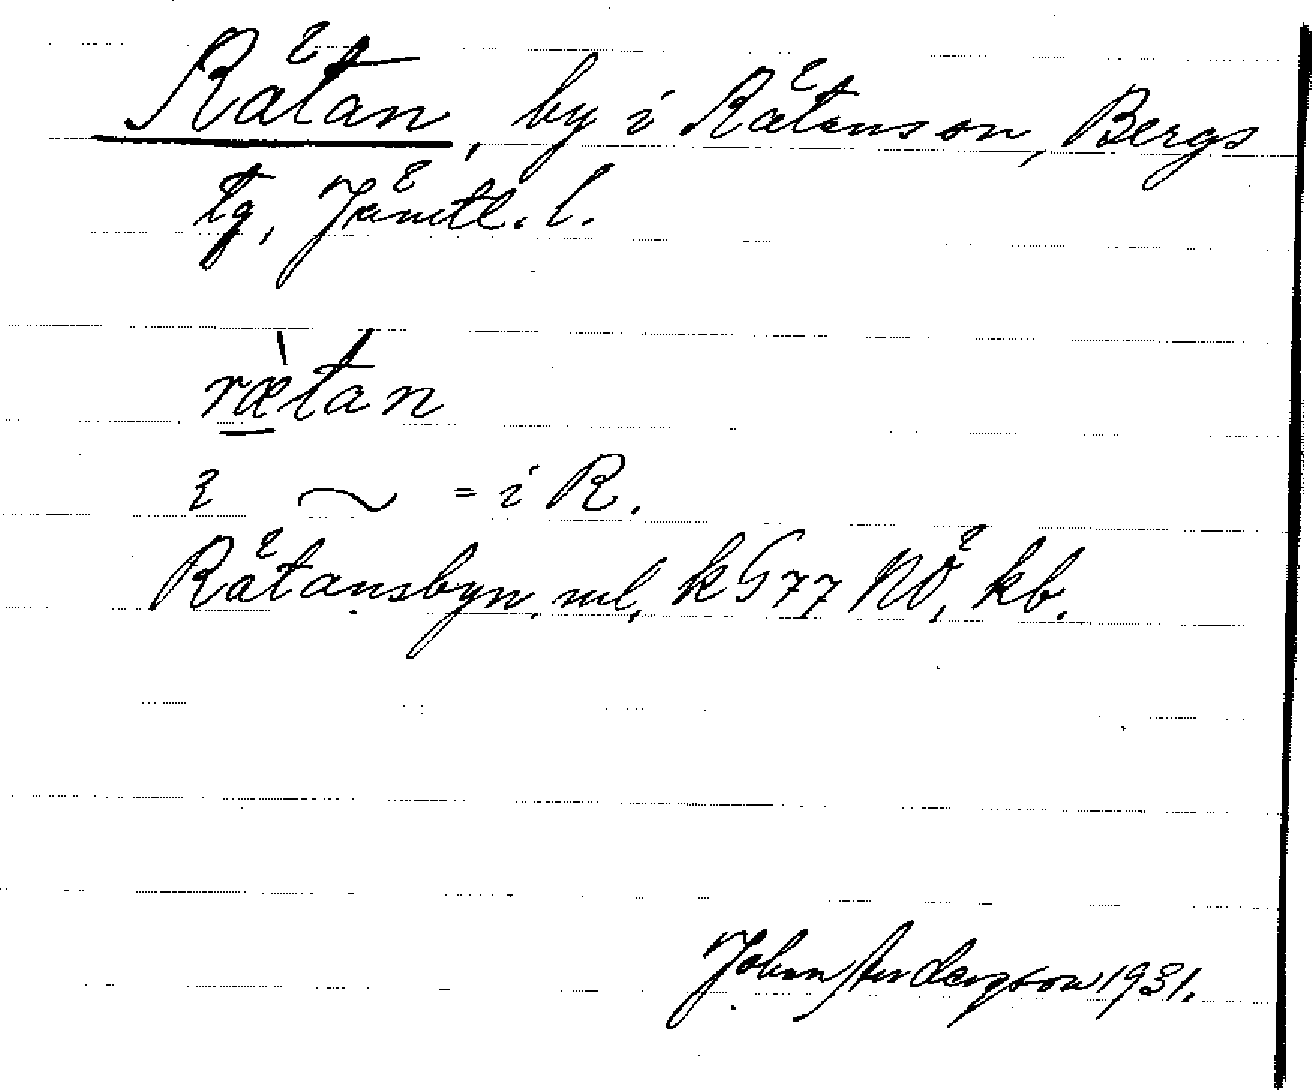 Rätan, by i Rätans sn, Bergs
tg, Jämtl. l.
ræ̀tan
i ~ = i R.
Rätansbyn, ml, k G77 NÖ, kb.
John Andersson 1931.